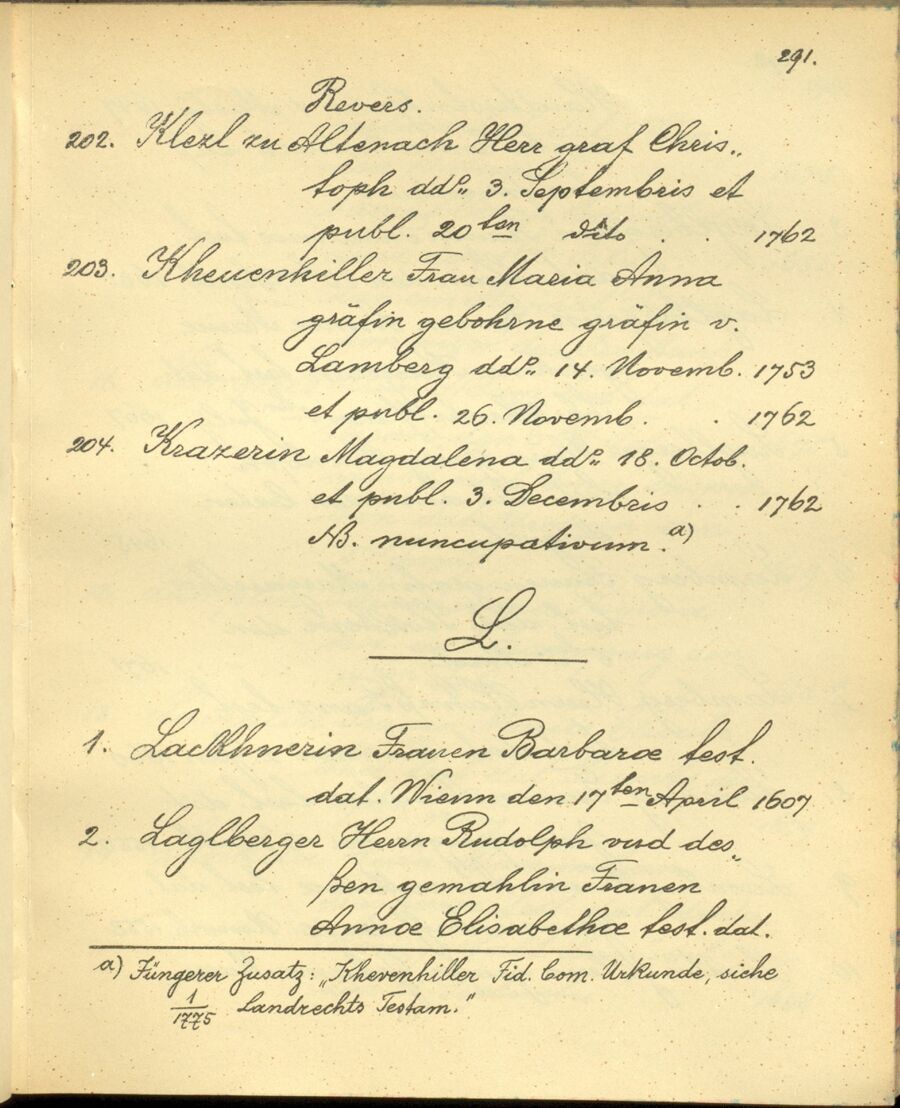 291.
Revers.
202. Klezl zu Altenach Herr graf Chris„
toph ddo„ 3. Septembris et
publ. 20ten dito . . 1762
203. Kheuenhiller Frau Maria Anna
gräfin gebohrne gräfin v.
Lamberg ddo„ 14. Novemb. 1753
et publ. 26. Novemb. . 1762
204. Krazerin Magdalena ddo„ 18. Octob.
et publ. 3. Decembris . . 1762
NB. nuncupativum. a)
L.
1. Lackhnerin Frauen Barbaræ test.
dat. Wienn den 17ten April 1607
2. Laglberger Herrn Rudolph vnd des„
ßen gemahlin Frauen
Annæ Elisabethæ test. dat.
a) Jüngerer Zusatz: „Khevenhiller Fid. Com. Urkunde, siehe
1/1775 Landrechts Testam."